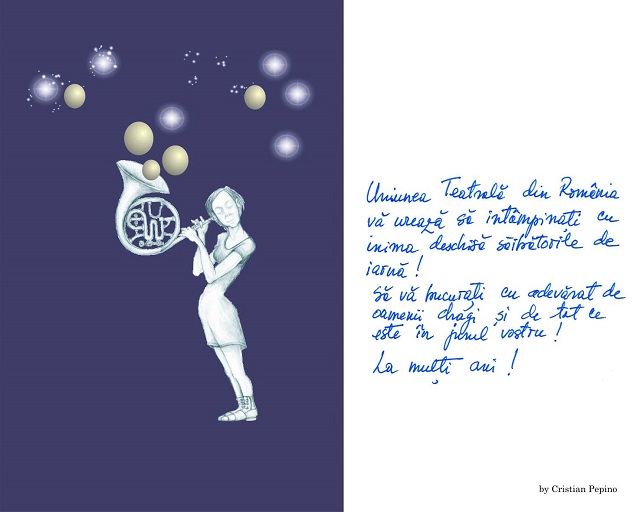 Uniunea Teatrală din România
vă urează să întâmpinați cu
inima deschisă sărbătorile de
iarnă!
Să vă bucurați cu adevărat de
oamenii dragi și de tot ce
este în jurul vostru!
La mulți ani!
by Cristian Pepino